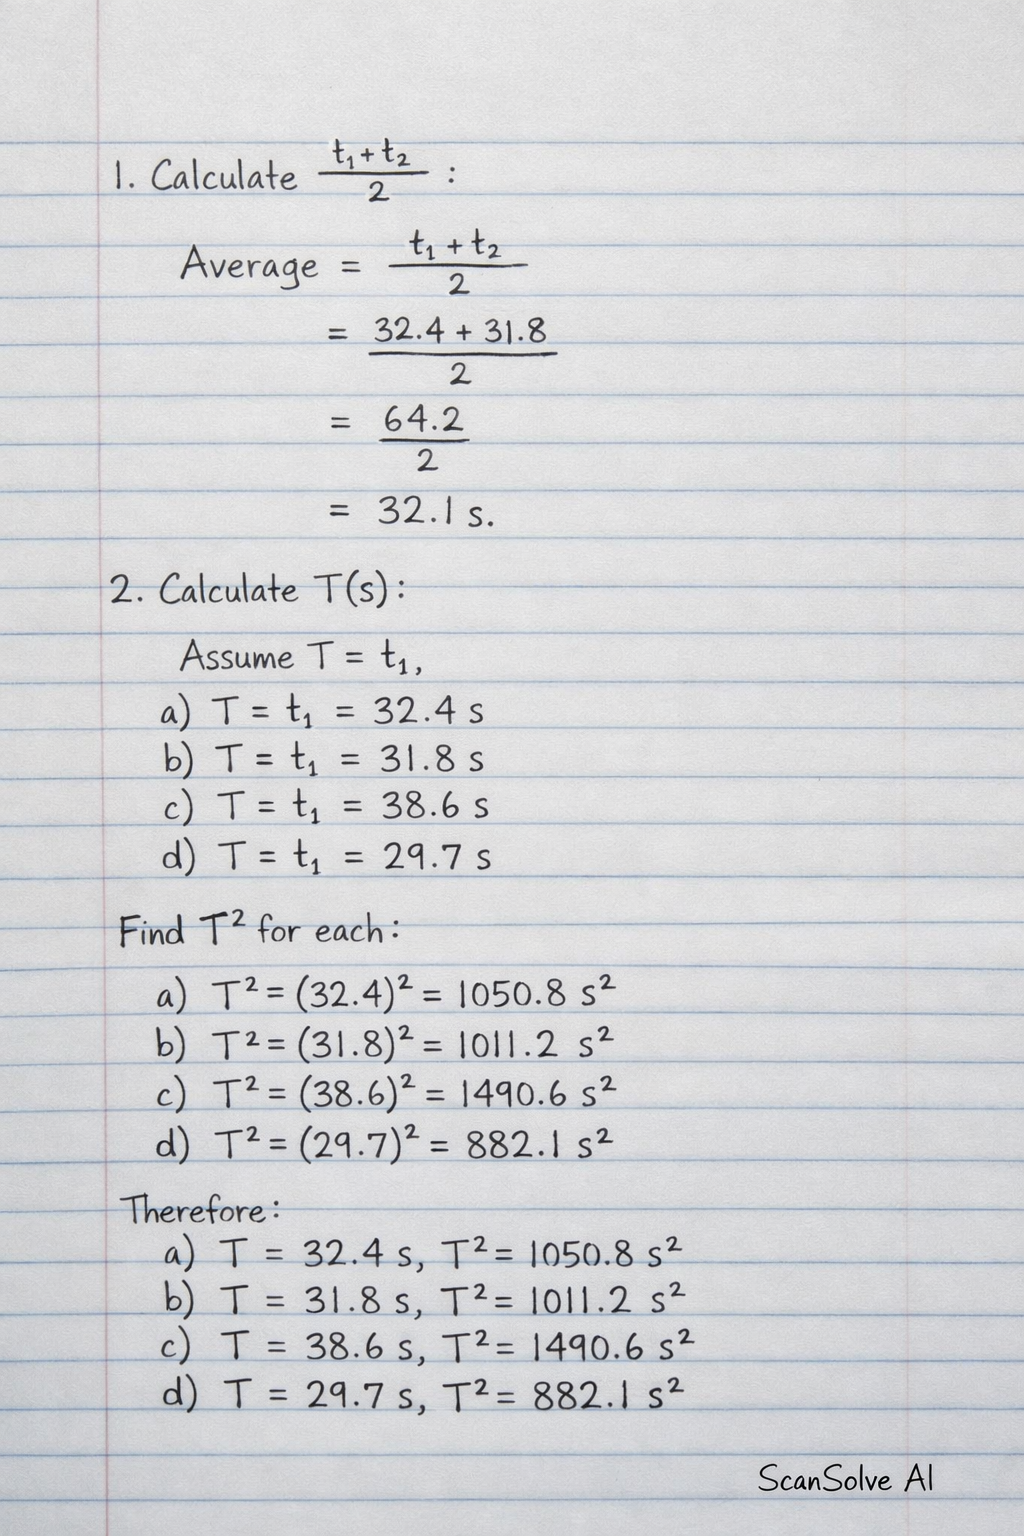 1. Calculate (t₁ + t₂)/2 :
Average = (t₁ + t₂)/2
= (32.4 + 31.8)/2
= 64.2/2
= 32.1 s.
2. Calculate T(s):
Assume T = t₁,
a) T = t₁ = 32.4 s
b) T = t₁ = 31.8 s
c) T = t₁ = 38.6 s
d) T = t₁ = 29.7 s
Find T² for each:
a) T² = (32.4)² = 1050.8 s²
b) T² = (31.8)² = 1011.2 s²
c) T² = (38.6)² = 1490.6 s²
d) T² = (29.7)² = 882.1 s²
Therefore:
a) T = 32.4 s, T² = 1050.8 s²
b) T = 31.8 s, T² = 1011.2 s²
c) T = 38.6 s, T² = 1490.6 s²
d) T = 29.7 s, T² = 882.1 s²
ScanSolve AI